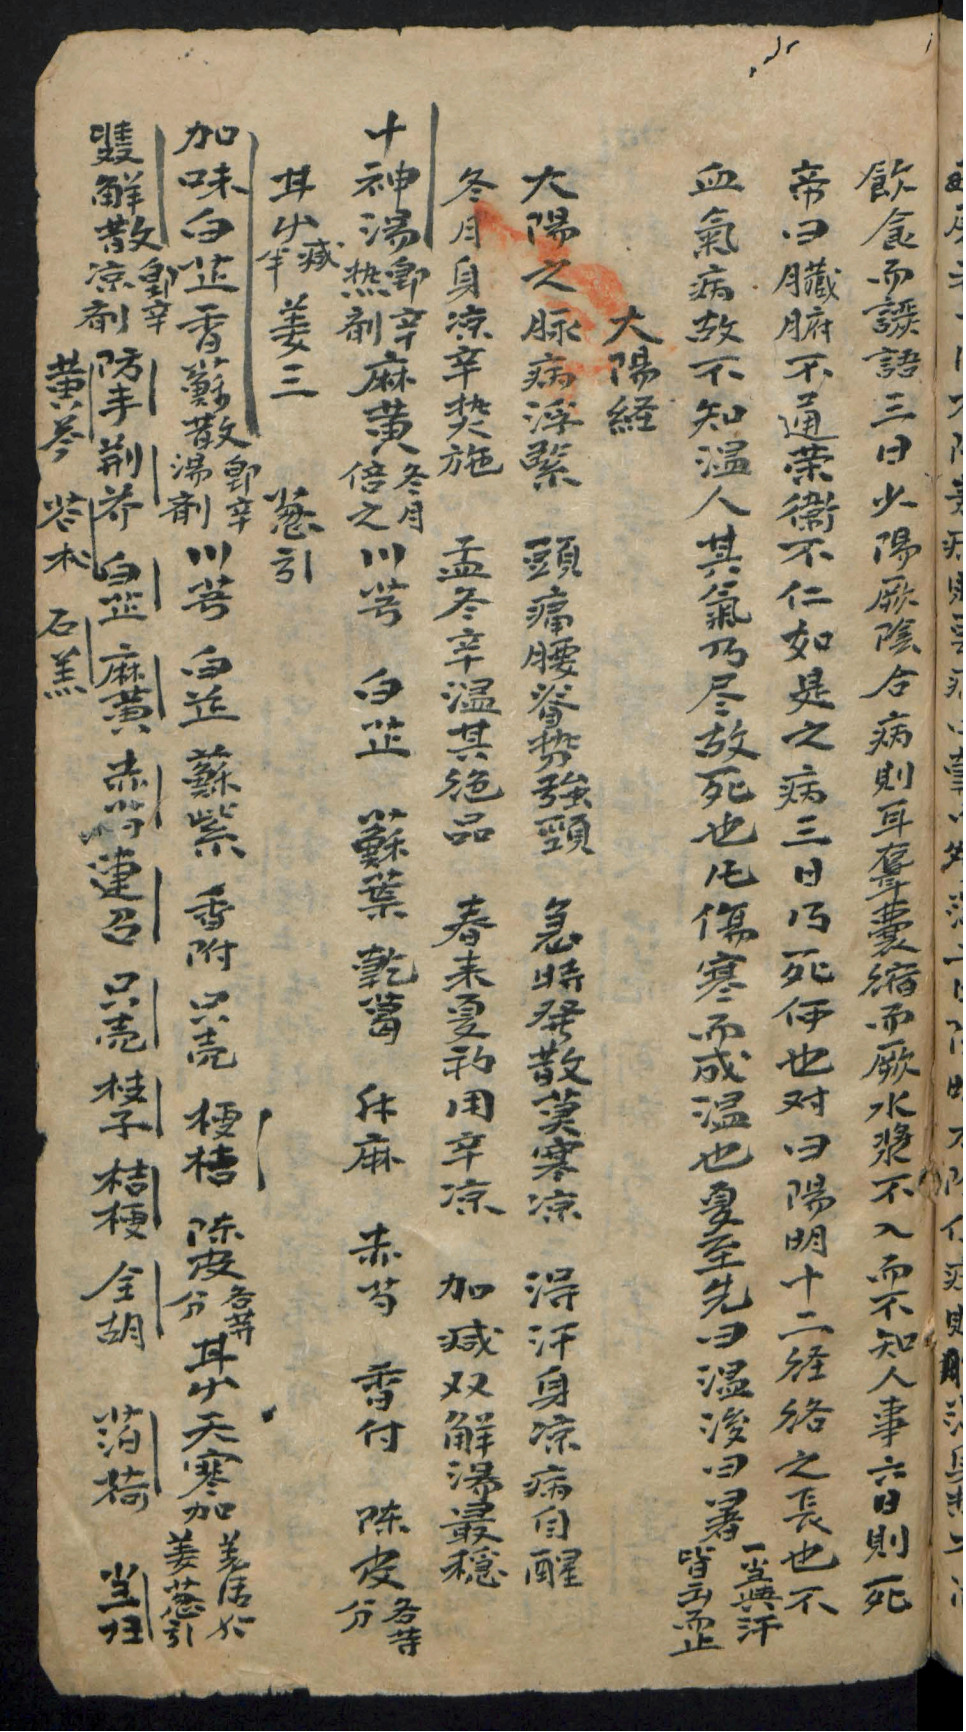 飲食而譟語三日少陽厥陰合病則耳聾囊縮而厥水漿不入而不知人事六日則死
帝曰臟腑不通荣衞不仁如是之病三日乃死何也对曰陽明十二経絡之長也不
血氣病故不知温人其氣乃尽故死也凡傷寒而成温也夏至先曰温後曰暑 當與汗皆出而止
大陽経
大陽之脉病浮緊 頭痛腰脊势強頸 急時發散莫寒凉 得汗身凉病自醒
冬月身凉辛热施 孟冬辛温其绝品 春来夏初用辛凉 加减双解湯最穩
十神湯 卽辛热剤 麻黄 冬月倍之 川芎 白芷 蘇葉 乾葛 升麻 赤芍 香付 陈皮 各等分
甘少 减半 姜三 葱引
加味白芷香蘇散 卽辛湯剤 川芎 白芷 蘇紫 香附 只壳 梗桔 陈皮 各等分 甘少 天寒加 姜葱引
雙解散 卽辛凉剤 防丰 荆芥 白芷 麻黄 赤芍 連召 只壳 枝子 桔梗 全胡 泊荷 当归
黄芩 苍术 石羔